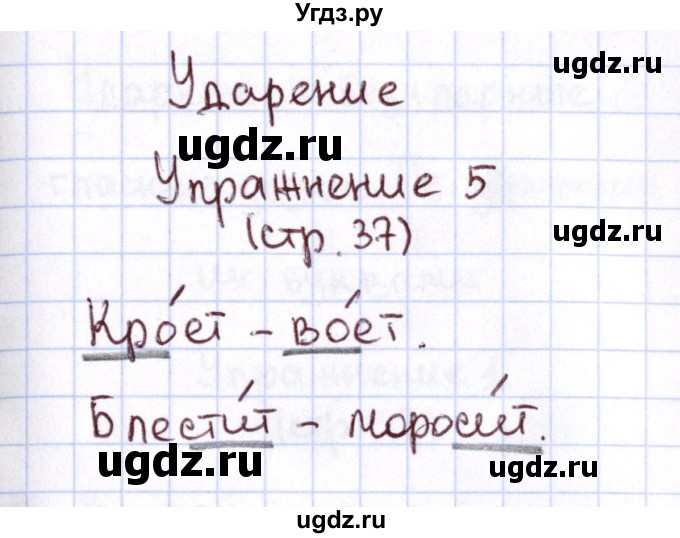 Угдз.ру
ugdz.ru
Ударение
ugdz.ru
Упражнение 5
(стр. 37)
Кро́ет – во́ет.
Блести́т – мороси́т.
ugdz.ru
ugdz.ru
ugdz.ru